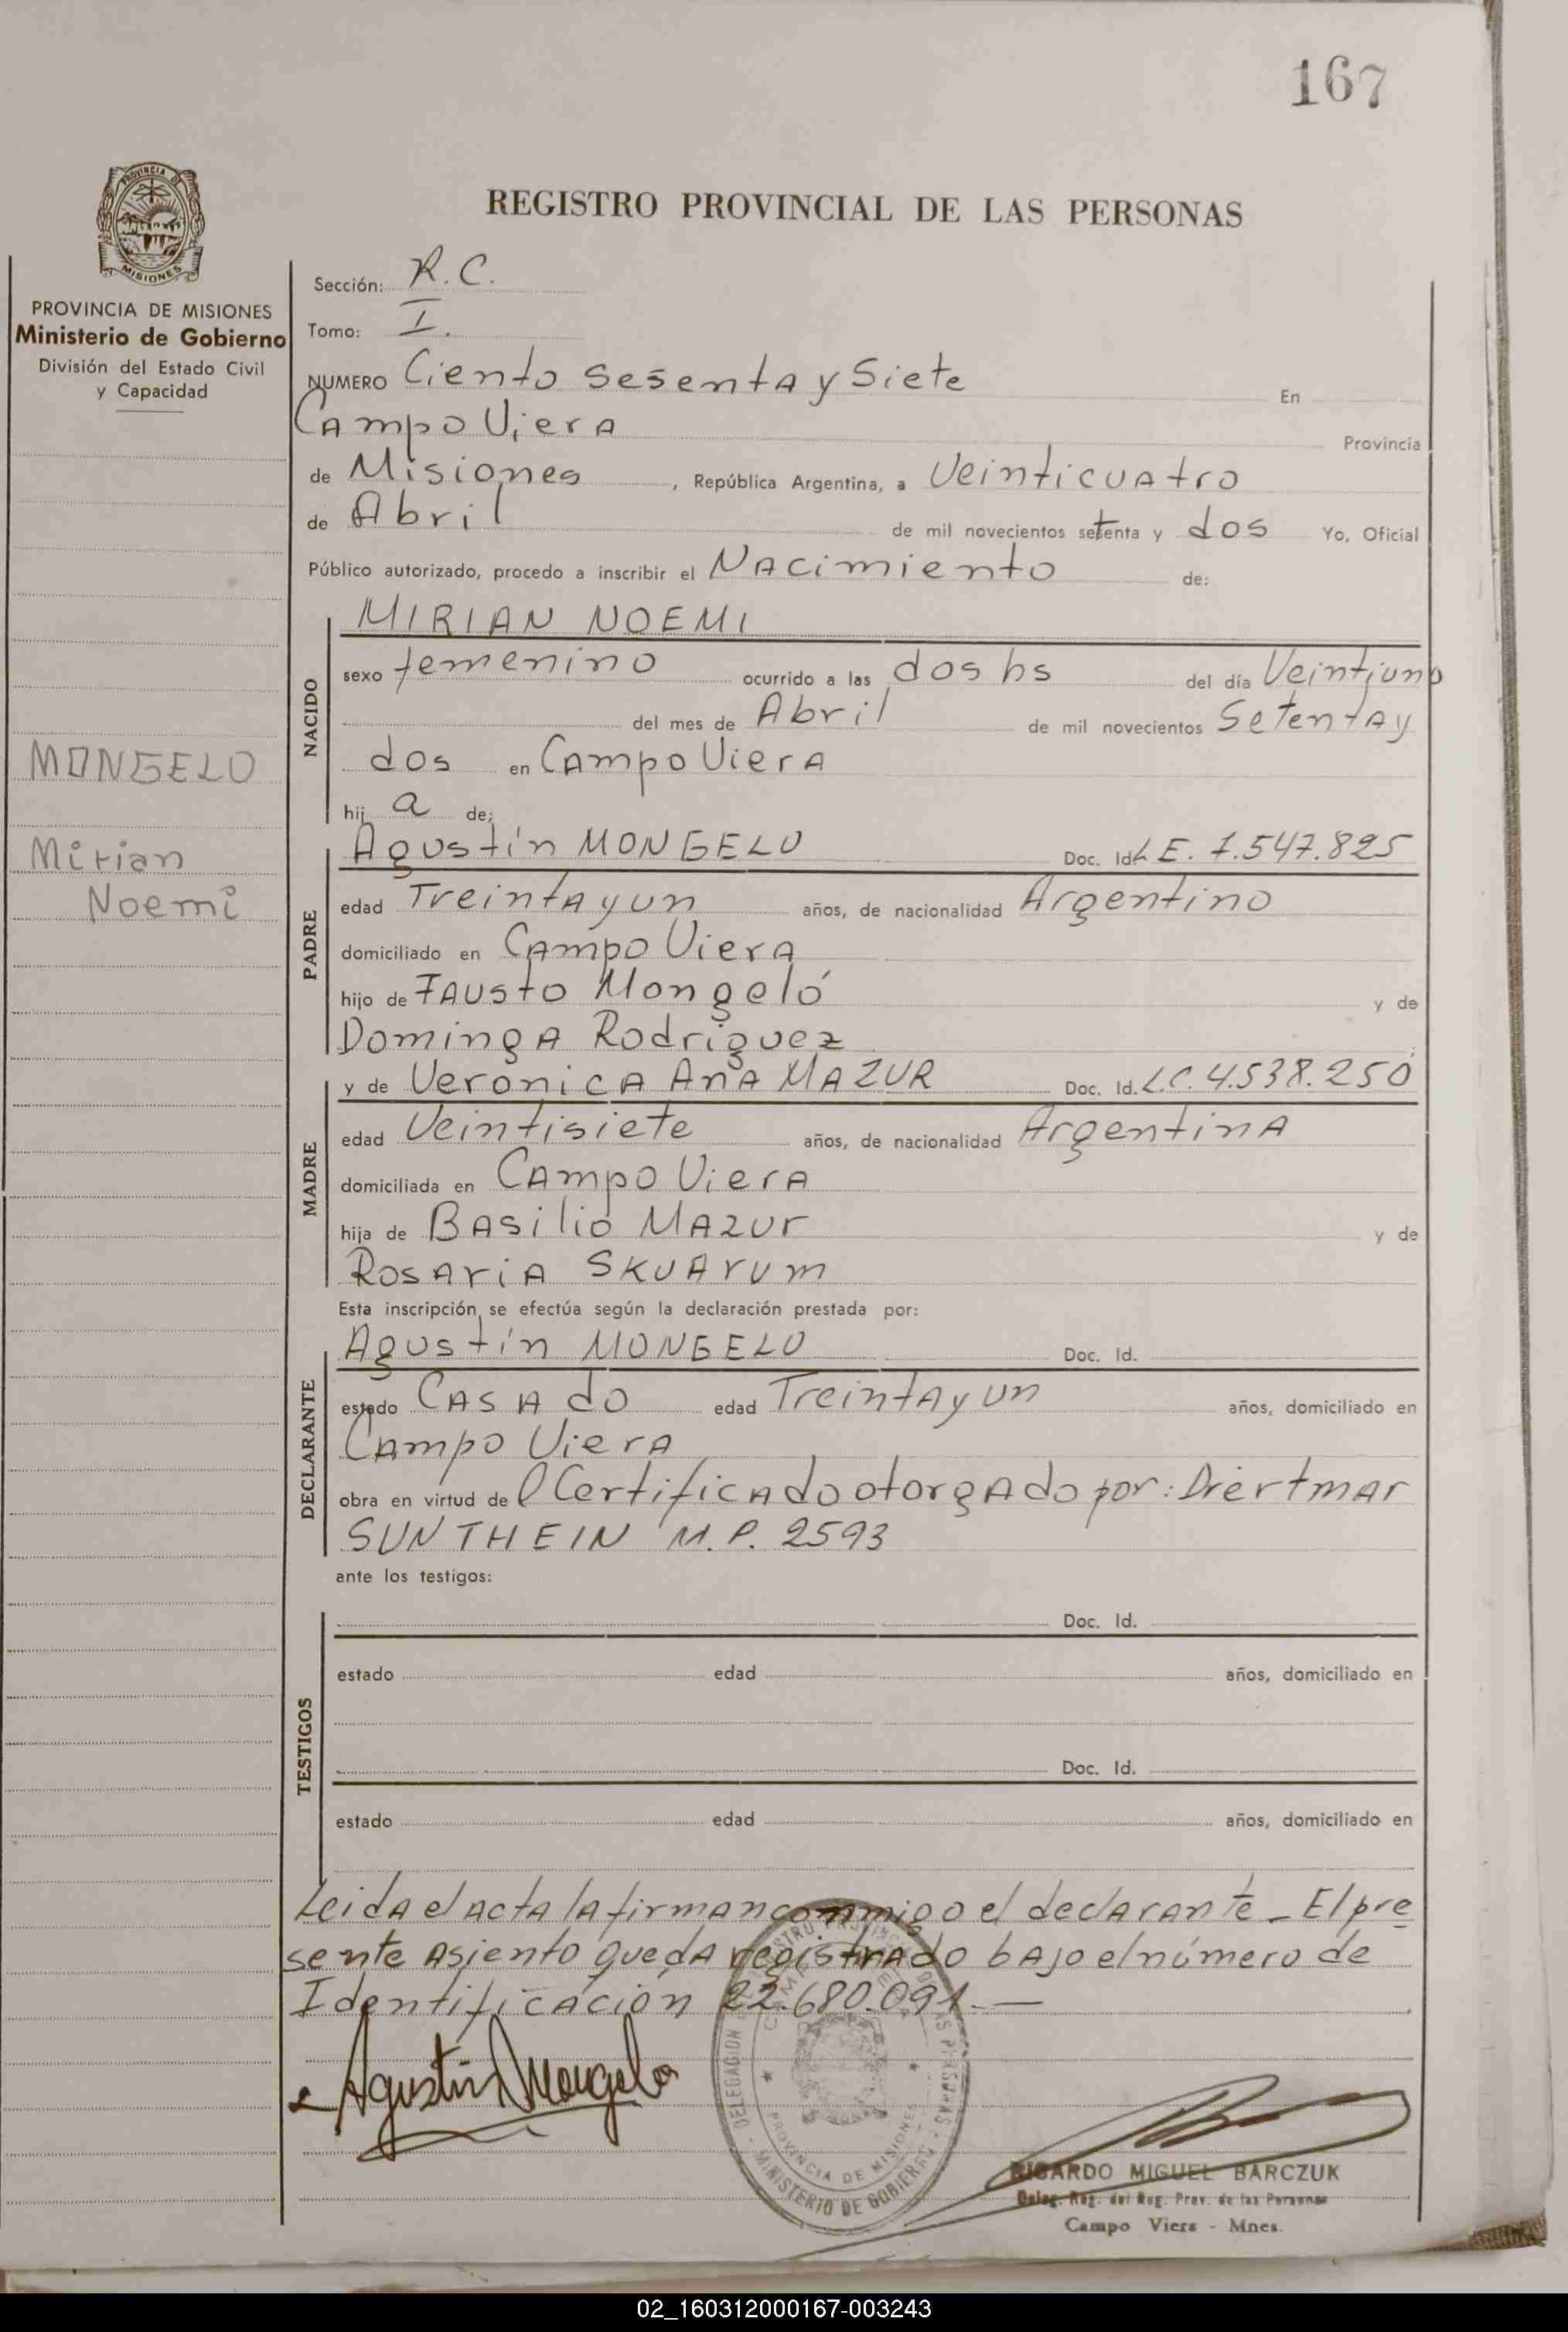 167
REGISTRO PROVINCIAL DE LAS PERSONAS
PROVINCIA DE MISIONES
Ministerio de Gobierno
División del Estado Civil
y Capacidad
Sección: R.C.
Tomo: I.
NUMERO Ciento Sesenta y Siete En
Campo Viera Provincia
de Misiones, República Argentina, a Veinticuatro
de Abril de mil novecientos setenta y dos Yo, Oficial
Público autorizado, procedo a inscribir el Nacimiento de:
NACIDO
MIRIAN NOEMI
sexo femenino ocurrido a las dos hs del día Veintiuno
del mes de Abril de mil novecientos Setenta y
dos en Campo Viera
hij a de:
MONGELO
Mirian
Noemi
PADRE
Agustín MONGELO Doc. Id. L.E. 7.547.825
edad Treinta y un años, de nacionalidad Argentino
domiciliado en Campo Viera
hijo de Fausto Mongeló y de
Dominga Rodriguez
MADRE
y de Veronica Ana MAZUR Doc. Id. L.C. 4.538.250
edad Veintisiete años, de nacionalidad Argentina
domiciliada en Campo Viera
hija de Basilio Mazur y de
Rosaria SKUARUM
Esta inscripción se efectúa según la declaración prestada por:
DECLARANTE
Agustín MONGELO Doc. Id.
estado Casado edad Treinta y un años, domiciliado en
Campo Viera
obra en virtud de l Certificado otorgado por: Diertmar
SUNTHEIN M.P. 2593
ante los testigos:
TESTIGOS
Doc. Id.
estado edad años, domiciliado en
Doc. Id.
estado edad años, domiciliado en
Leida el acta la firman conmigo el declarante - El pre
sente asiento queda registrado bajo el número de
Identificación 22.680.091.—
Agustín Mongelo
PROVINCIA DE MISIONES
MINISTERIO DE GOBIERNO
RICARDO MIGUEL BARCZUK
Deleg. Reg. del Reg. Prov. de las Personas
Campo Viera - Mnes.
02_160312000167-003243